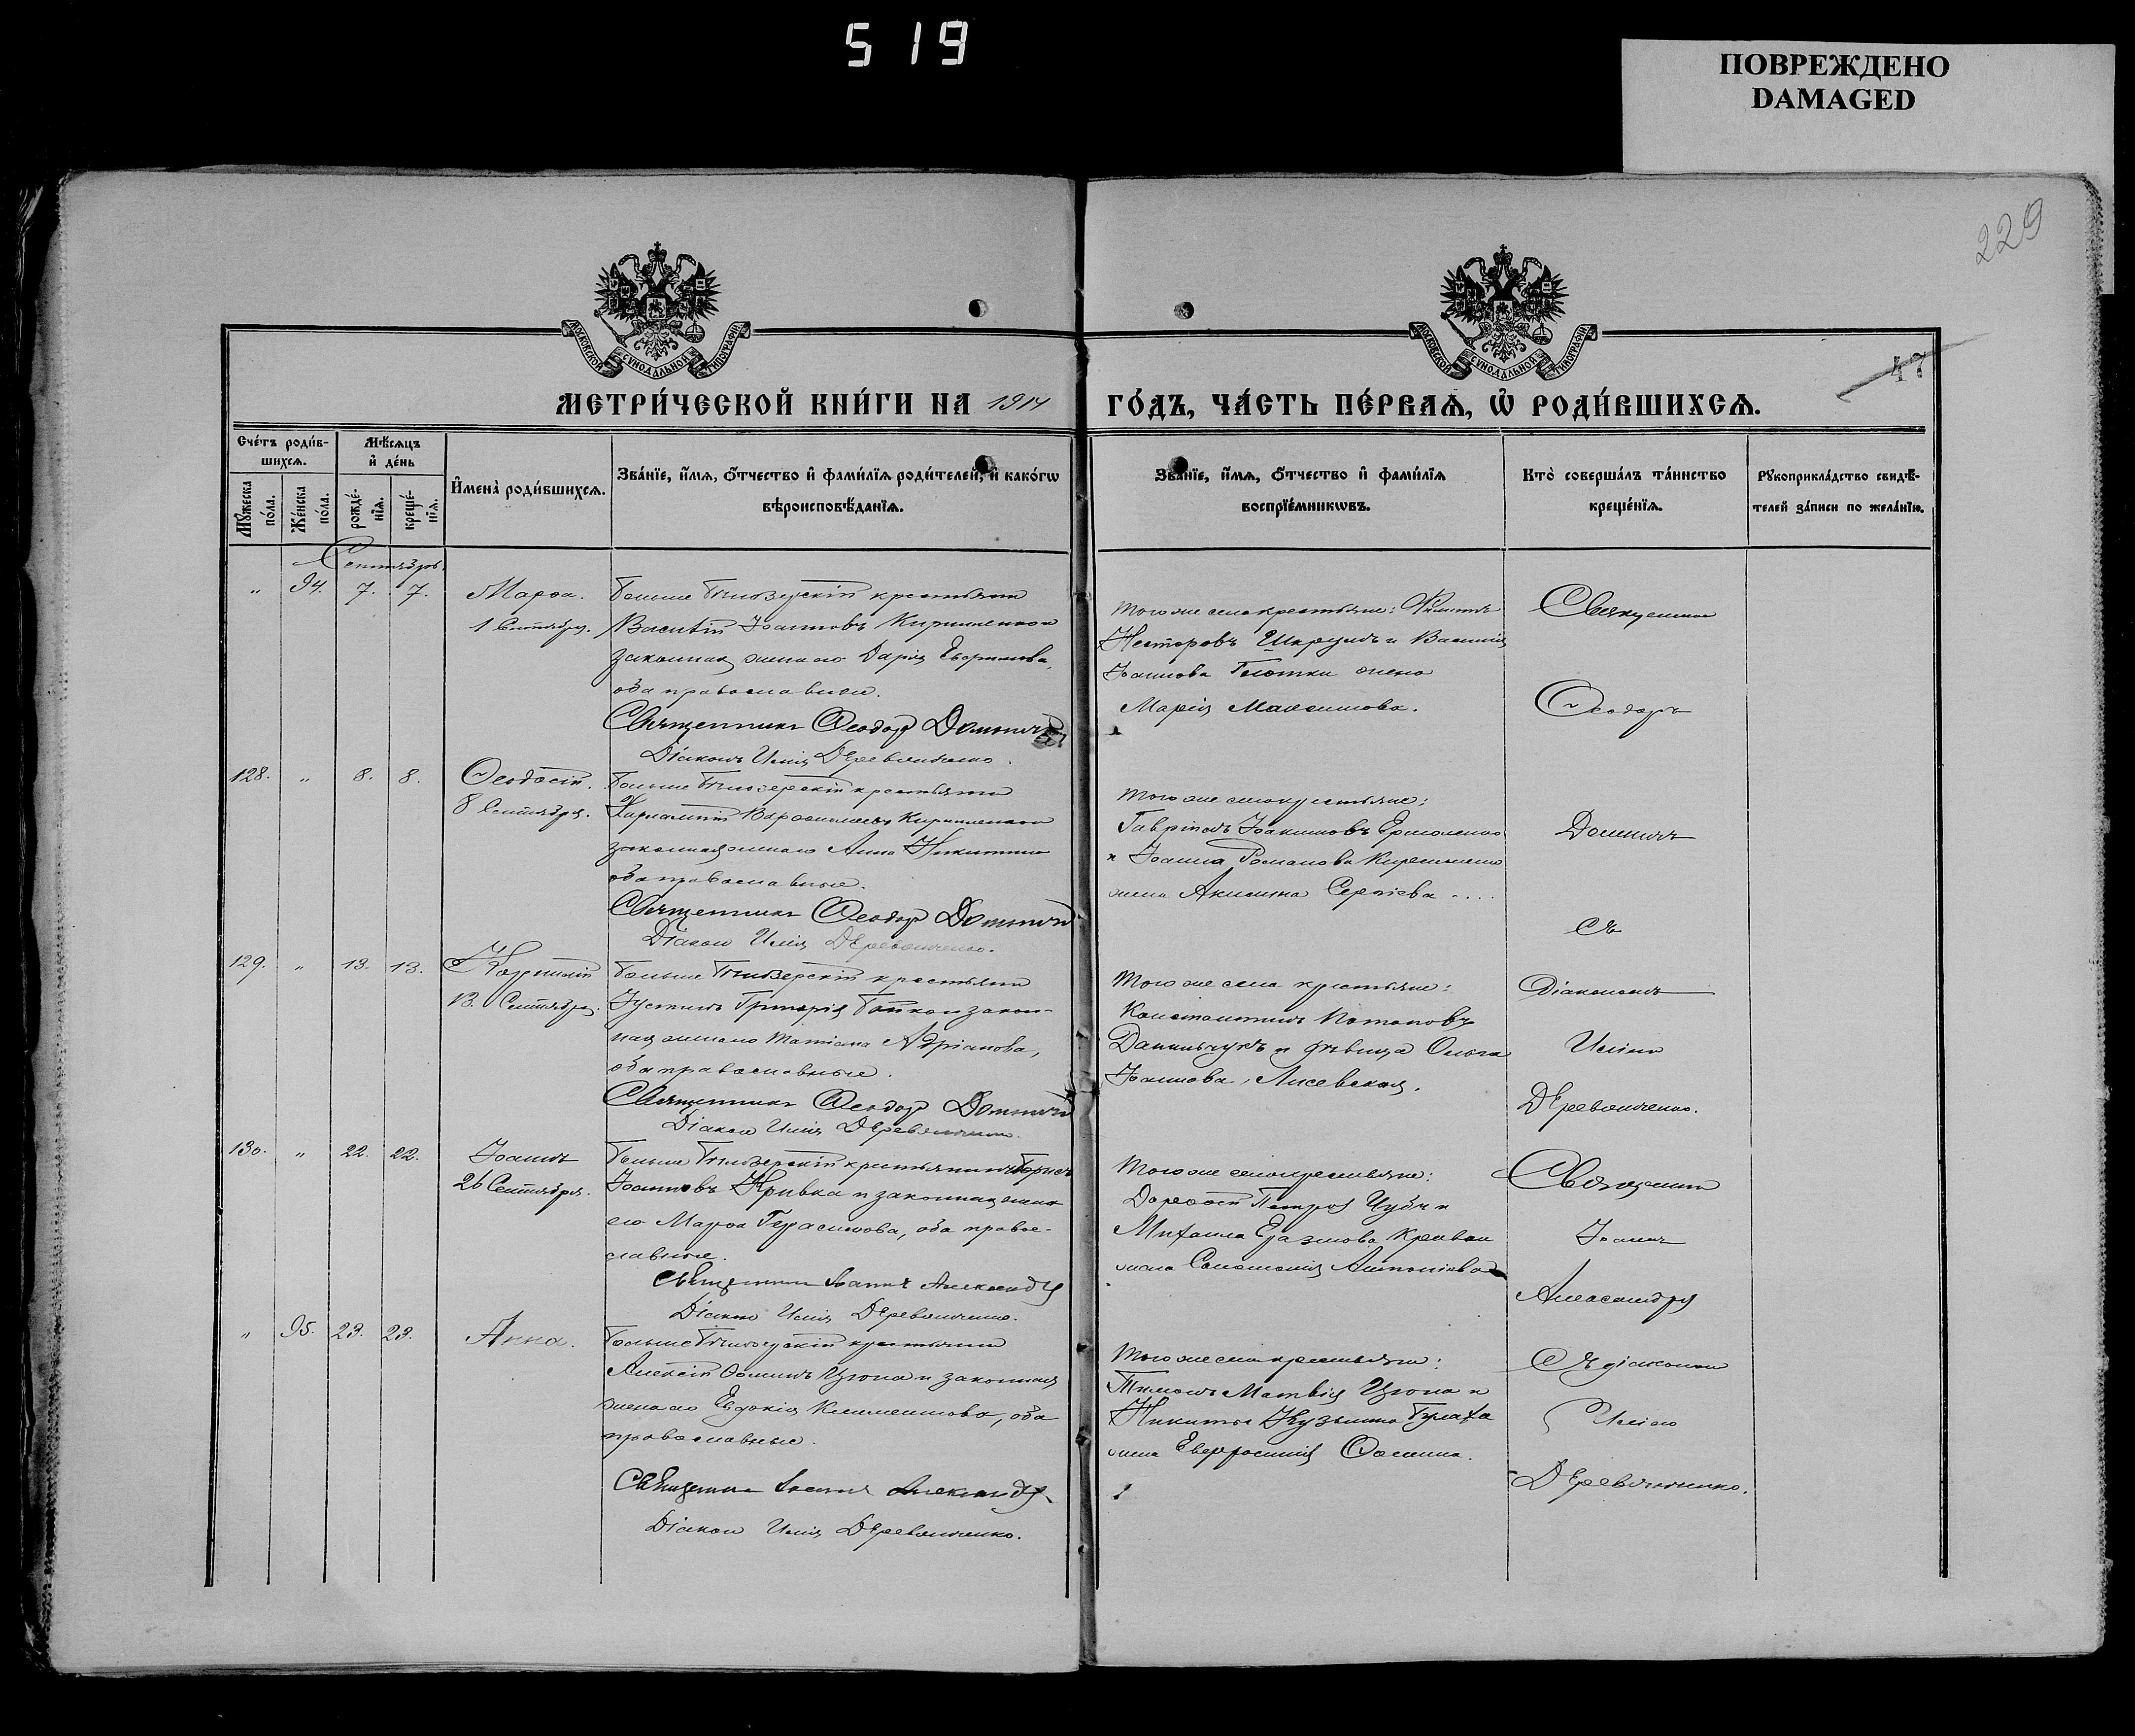 519
ПОВРЕЖДЕНО
DAMAGED
229
МОСКОВСКОЙ СУНОДАЛЬНОЙ ТИПОГРАФІИ
МОСКОВСКОЙ СУНОДАЛЬНОЙ ТИПОГРАФІИ
47
МЕТРИ́ЧЕСКОЙ КНИ́ГИ НА 1914 ГО́ДЪ, ЧА́СТЬ ПЕ́РВАѦ, Ѡ҆ РОДИ́ВШИХСѦ.
Сче́тъ роди́в-
шихсѧ.
Мꙋ́жеска
по́ла.
Же́нска
по́ла.
Мѣ́сѧцъ
и҆ де́нь
рожде́-
нїѧ.
креще́-
нїѧ.
И҆мена̀ роди́вшихсѧ.
Зва́нїе, и҆́мѧ, ѻ҆́тчество и҆ фами́лїѧ роди́телей, и҆ како́гѡ
вѣроисповѣ́данїѧ.
Зва́нїе, и҆́мѧ, ѻ҆́тчество и҆ фами́лїѧ
воспрїе́мникѡвъ.
Кто̀ соверша́лъ та́инство
креще́нїѧ.
Рꙋкоприкла́дство свидѣ́-
телей за́писи по жела́нїю.
Сентябрь
" 94. 7. 7. Марѳа.
1 Сентября.
Больше Бѣлозерскій крестьянинъ
Василій Іоанновъ Кириленко и
законная жена его Дарія Евфимова,
оба православные.
Священникъ Ѳеодоръ Домничъ
Діаконъ Илія Деревянченко.
Того же села крестьяне: Филиппъ
Несторовъ Шкрумъ и Василія
Іоаннова жена
Марія Максимова.
Священникъ
Ѳеодоръ
Домничъ
съ
Діакономъ
Иліею
Деревянченко.
128. " 8. 8. Ѳеодосій.
8 Сентября.
Больше Бѣлозерскій крестьянинъ
Харлампій Варѳоломеевъ Кириленко и
законная жена его Анна Никитина
оба православные.
Священникъ Ѳеодоръ Домничъ
Діаконъ Илія Деревянченко.
Того же села крестьяне:
Гавріилъ Іоакимовъ Ермоленко
и Іоанна Романова Кириленко
жена Акилина Сергіева....
129. " 13. 13. Корнилій
13 Сентября.
Больше Бѣлозерскій крестьянинъ
Іустинъ Григорія Бойко и закон-
ная жена его Татіана Адріанова,
оба православные.
Священникъ Ѳеодоръ Домничъ
Діаконъ Илія Деревянченко.
Того же села крестьяне:
Константинъ Потаповъ
Данильчукъ и дѣвица Ольга
Іоаннова Лисевская.
130. " 22. 22. Іоаннъ
26 Сентября.
Больше Бѣлозерскій крестьянинъ Борисъ
Іоанновъ Кривка и законная жена
его Марѳа Герасимова, оба право-
славные.
Священникъ Іоаннъ Александр
Діаконъ Илія Деревянченко.
Того же села крестьяне:
Дороѳей Петров и
Михаила Еразмова Кривки
жена Соломонія Антоніева
Священникъ
Іоаннъ
Александр
съ діакономъ
Иліею
Деревянченко.
" 95. 23. 23. Анна.
Больше Бѣлозерскій крестьянинъ
Алексій Ѳоминъ Цюпа и законная
жена его Евдокія Климентова, оба
православные.
Священникъ Іоаннъ Александр
Діаконъ Илія Деревянченко.
Того же села крестьяне:
Тимонъ Матвія Цюпа и
Никиты Кузьмина Булаха
жена Евфросинія Ѳомина.